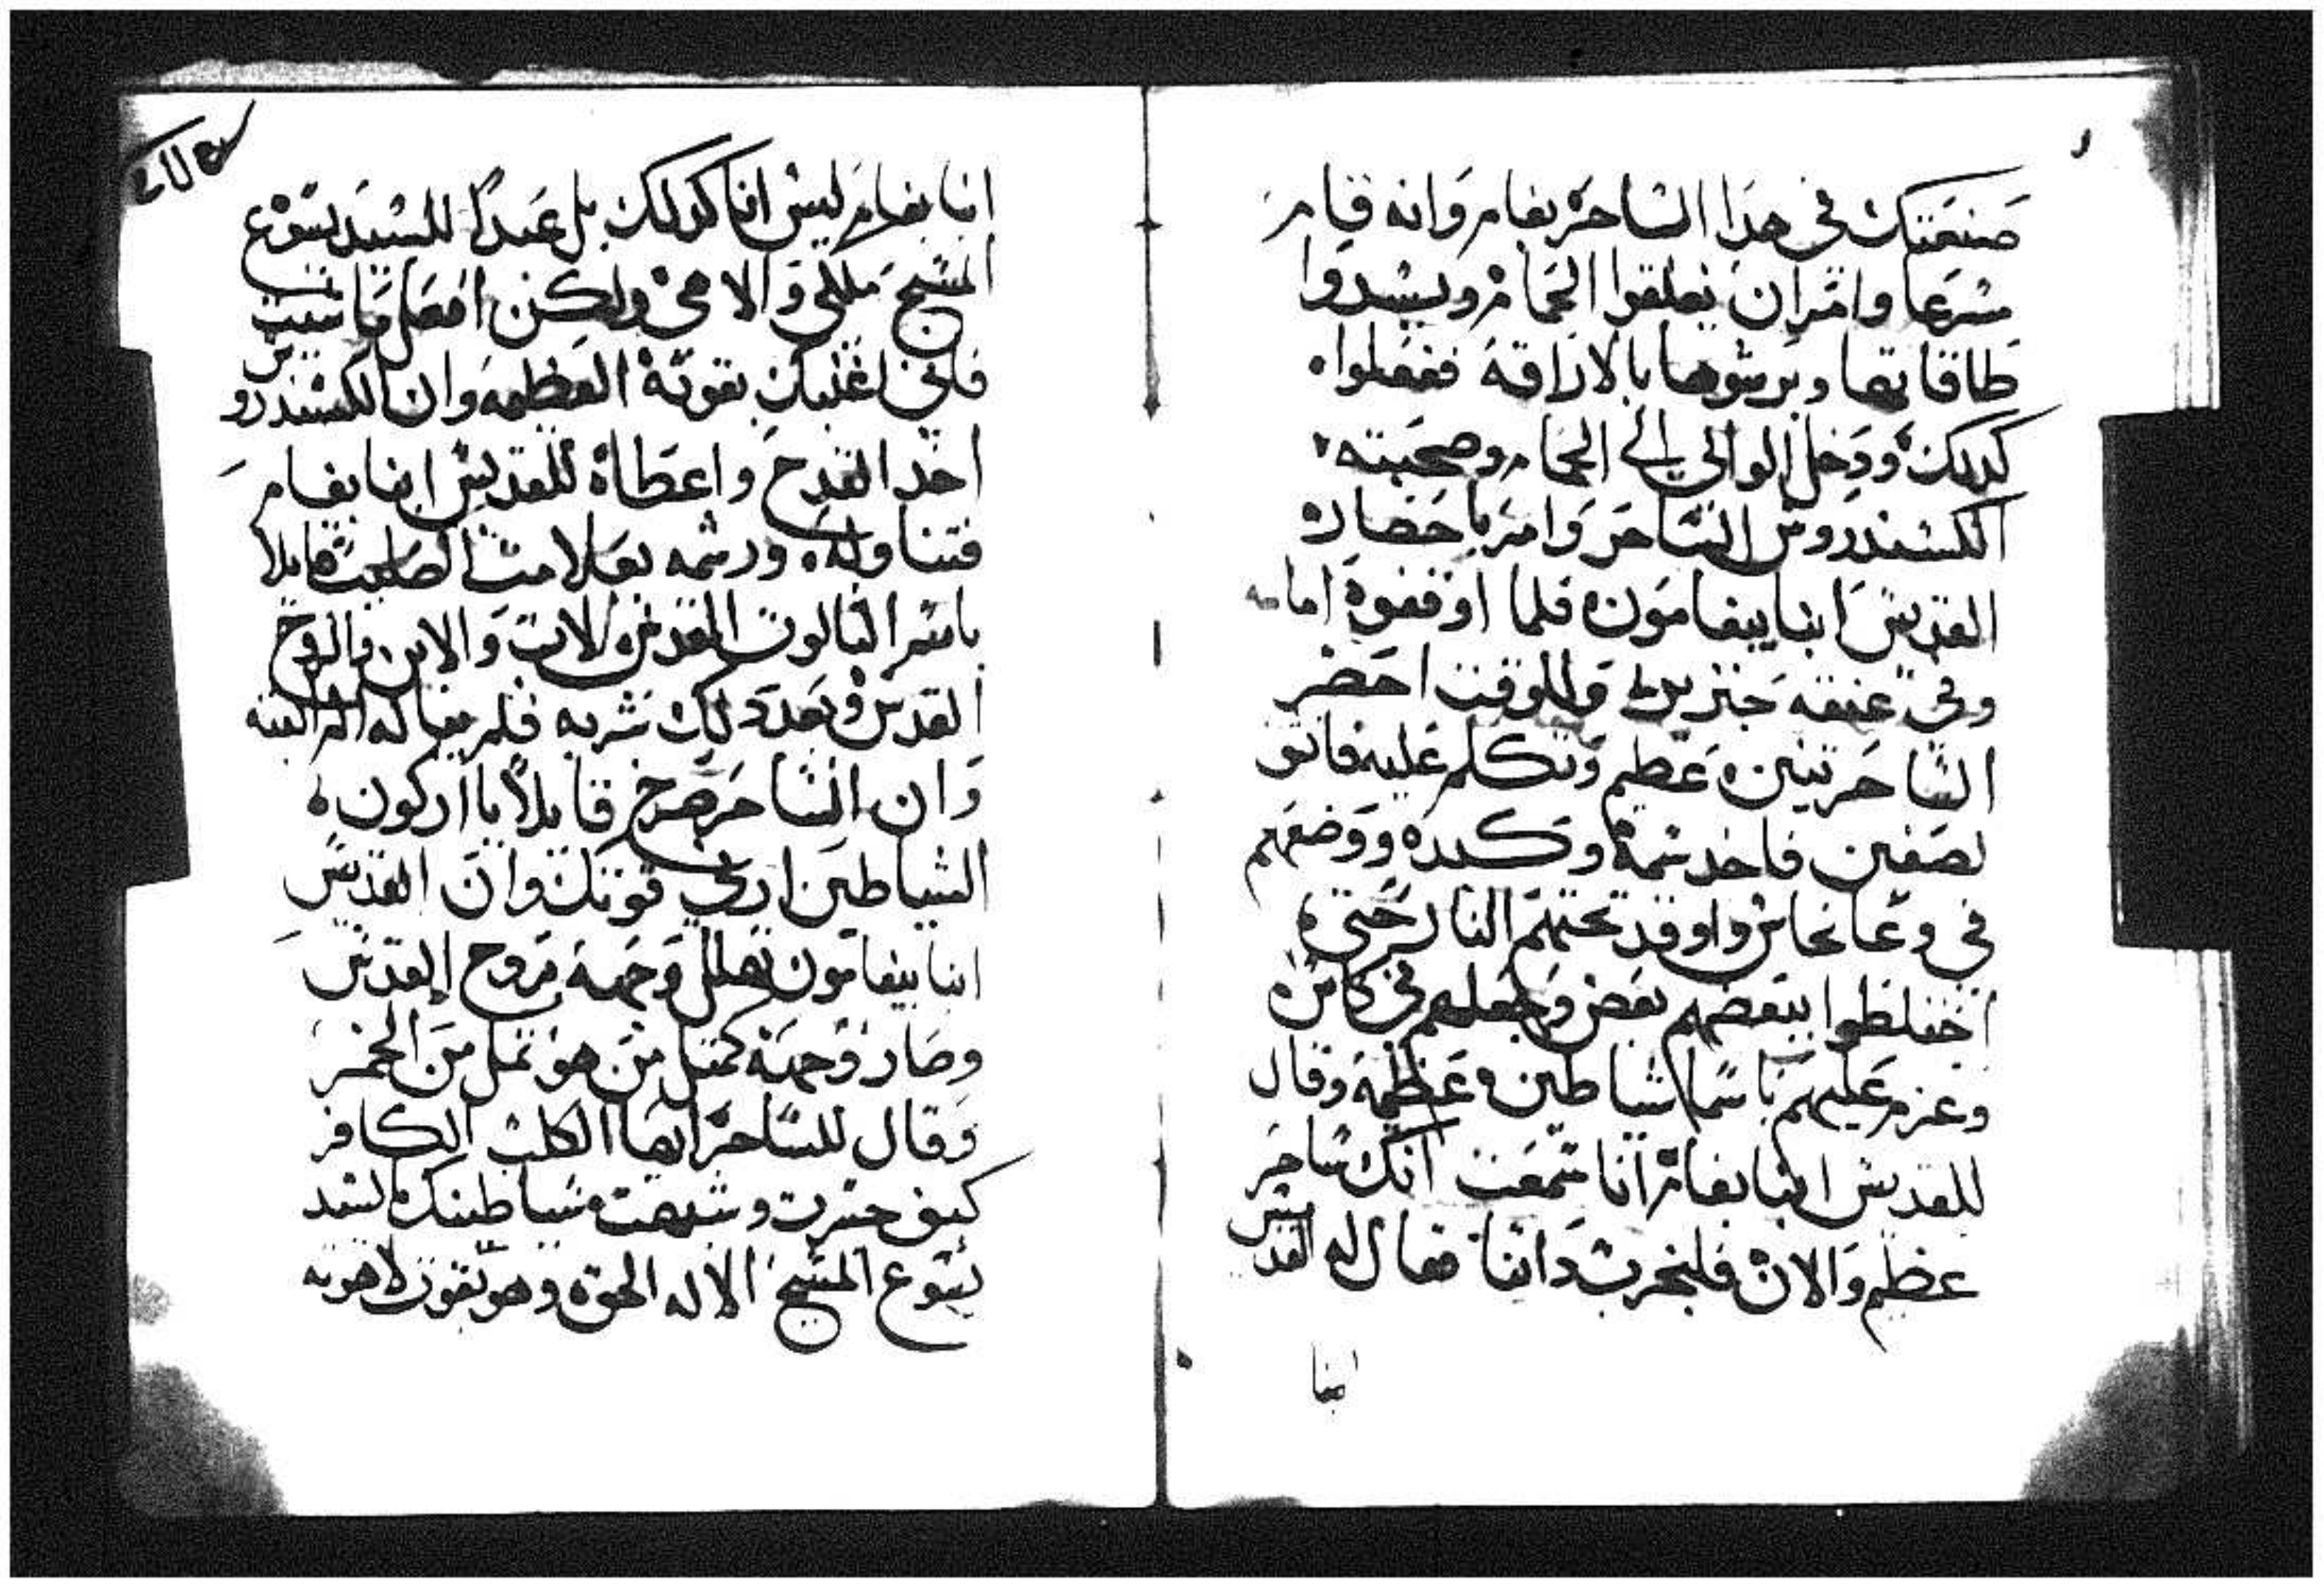 صنعتك في هدا الساحر بفام وانه قام
مسرعا وامر ان يغلقوا الحمام ويسدوا
طاقاتها ويرشوها بالاراقة ففعلوا
كدلك ودخل الوالي الي الحمام وصحبته
الكسندروس الساحر وامر باحضار
القديس ابنا ببفامون فلما اوقفوه امامه
وفي عنقه جنزير وللوقت احضر
الساحر تنين عظيم وتكلم عليه فانشق
نصفين فاخد سمه وكبده ووضعهم
في وعا نحاس واوقد تحتهم النار حتي
اختلطوا ببعضهم بعض وجعلهم في كاس
وعزم عليهم باسما شياطين عظيمة وقال
للقديس ابنا بفام انا سمعت انك ساحر
عظيم والان فلنجرب داتنا فقال له القديس
ابنا
ابنا بفام ليس انا كدلك بل عبدا للسيد يسوع
المسيح ملكي والاهي ولكن افعل ما شيت
فاني اغلبك بقوته العظيمه وان الكسندروس
اخد القدح واعطاه للقديس ابنا بفام
فتناوله ورشمه بعلامت الصليب قايلا
باسم التالوت المقدس الاب والابن والروح
القدس وبعد دلك شربه فلم يناله الم البته
وان الساحر صرخ قايلا يا اركون
الشياطين اري قوتك وان القديس
ابنا ببفامون تهلل وجهه بروح القدس
وصار وجهه كمتل من هو تمل من الخمر
وقال للساحر ايها الكلب الكافر
كيف جسرت وشبهت شياطينك لسيد
يسوع المسيح الاله الحق وهو بقوة لاهوته